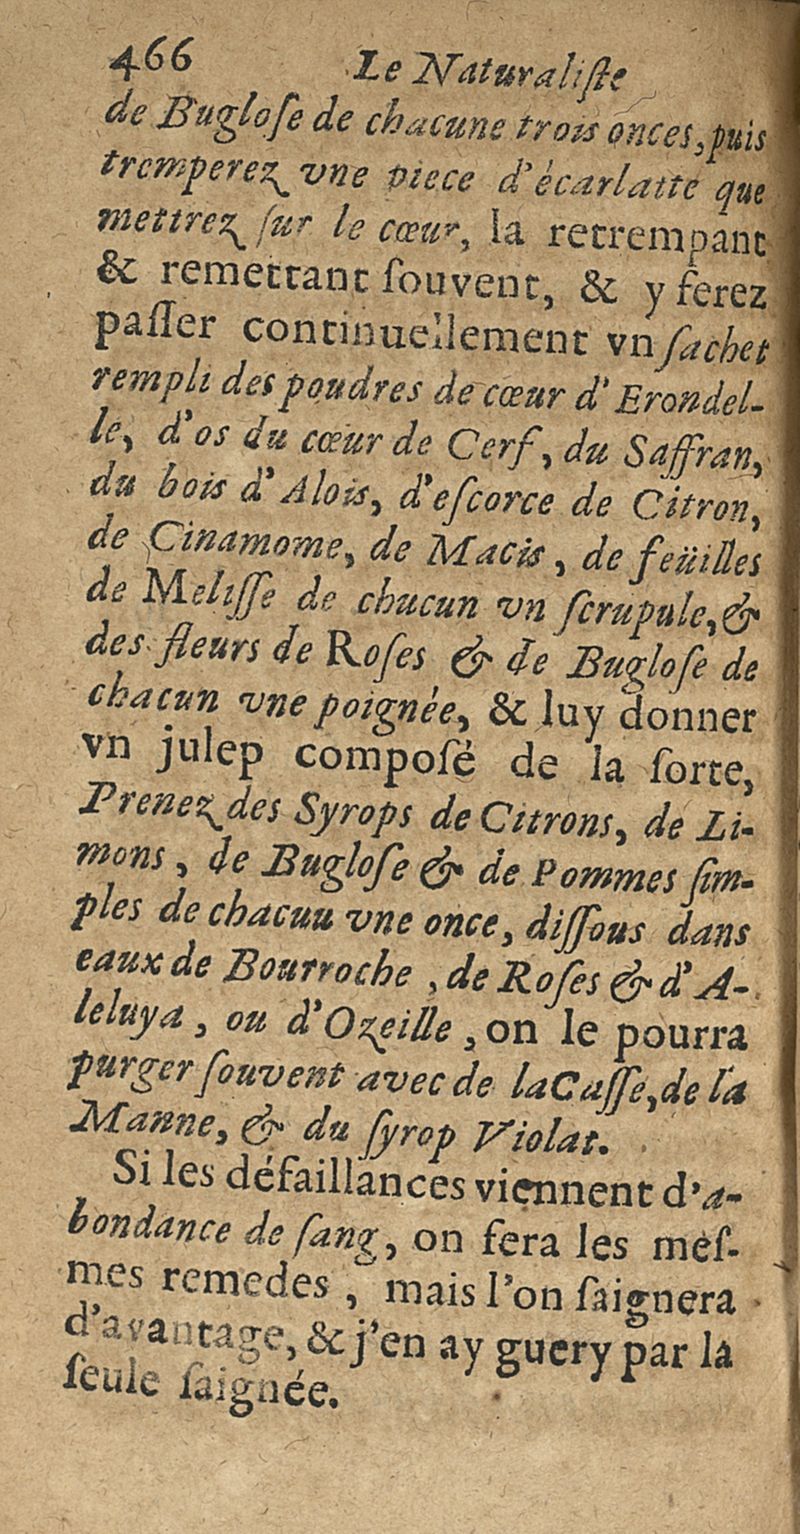 466 Le Naturaliſte
de Bugloſe de chacune trois onces, puis
tremperez vne piece d'écarlatte que
mettrez ſur le cœur, la retrempant
& remettant ſouvent, & y ferez
paſſer continuellement vn ſachet
rempli des poudres de cœur d'Erondel-
le, d'os du cœur de Cerf, du Saffran,
du bois d'Alois, d'eſcorce de Citron,
de Cinamome, de Macis, de feüilles
de Meliſſe de chucun vn ſcrupule, &
des fleurs de Roſes & de Bugloſe de
chacun vne poignée, & luy donner
vn julep compoſé de la ſorte,
Prenez des Syrops de Citrons, de Li-
mons, de Bugloſe & de Pommes ſim-
ples de chacuu vne once, diſſous dans
eaux de Bourroche, de Roſes & d'A-
leluya, ou d'Ozeille, on le pourra
purger ſouvent avec de la Caſſe, de la
Manne, & du ſyrop Violat.
Si les défaillances viennent d'a-
bondance de ſang, on fera les meſ-
mes remedes, mais l'on ſaignera
d'avantage, & j'en ay guery par la
ſeule ſaignée.